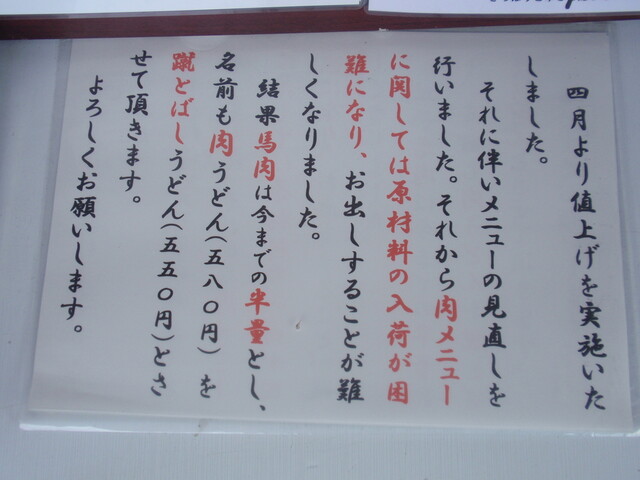 四月より値上げを実施いた
しました。
それに伴いメニューの見直しを
行いました。それから肉メニュー
に関しては原材料の入荷が困
難になり、お出しすることが難
しくなりました。
結果馬肉は今までの半量とし、
名前も肉うどん(五八〇円)を
蹴とばしうどん(五五〇円)とさ
せて頂きます。
よろしくお願いします。